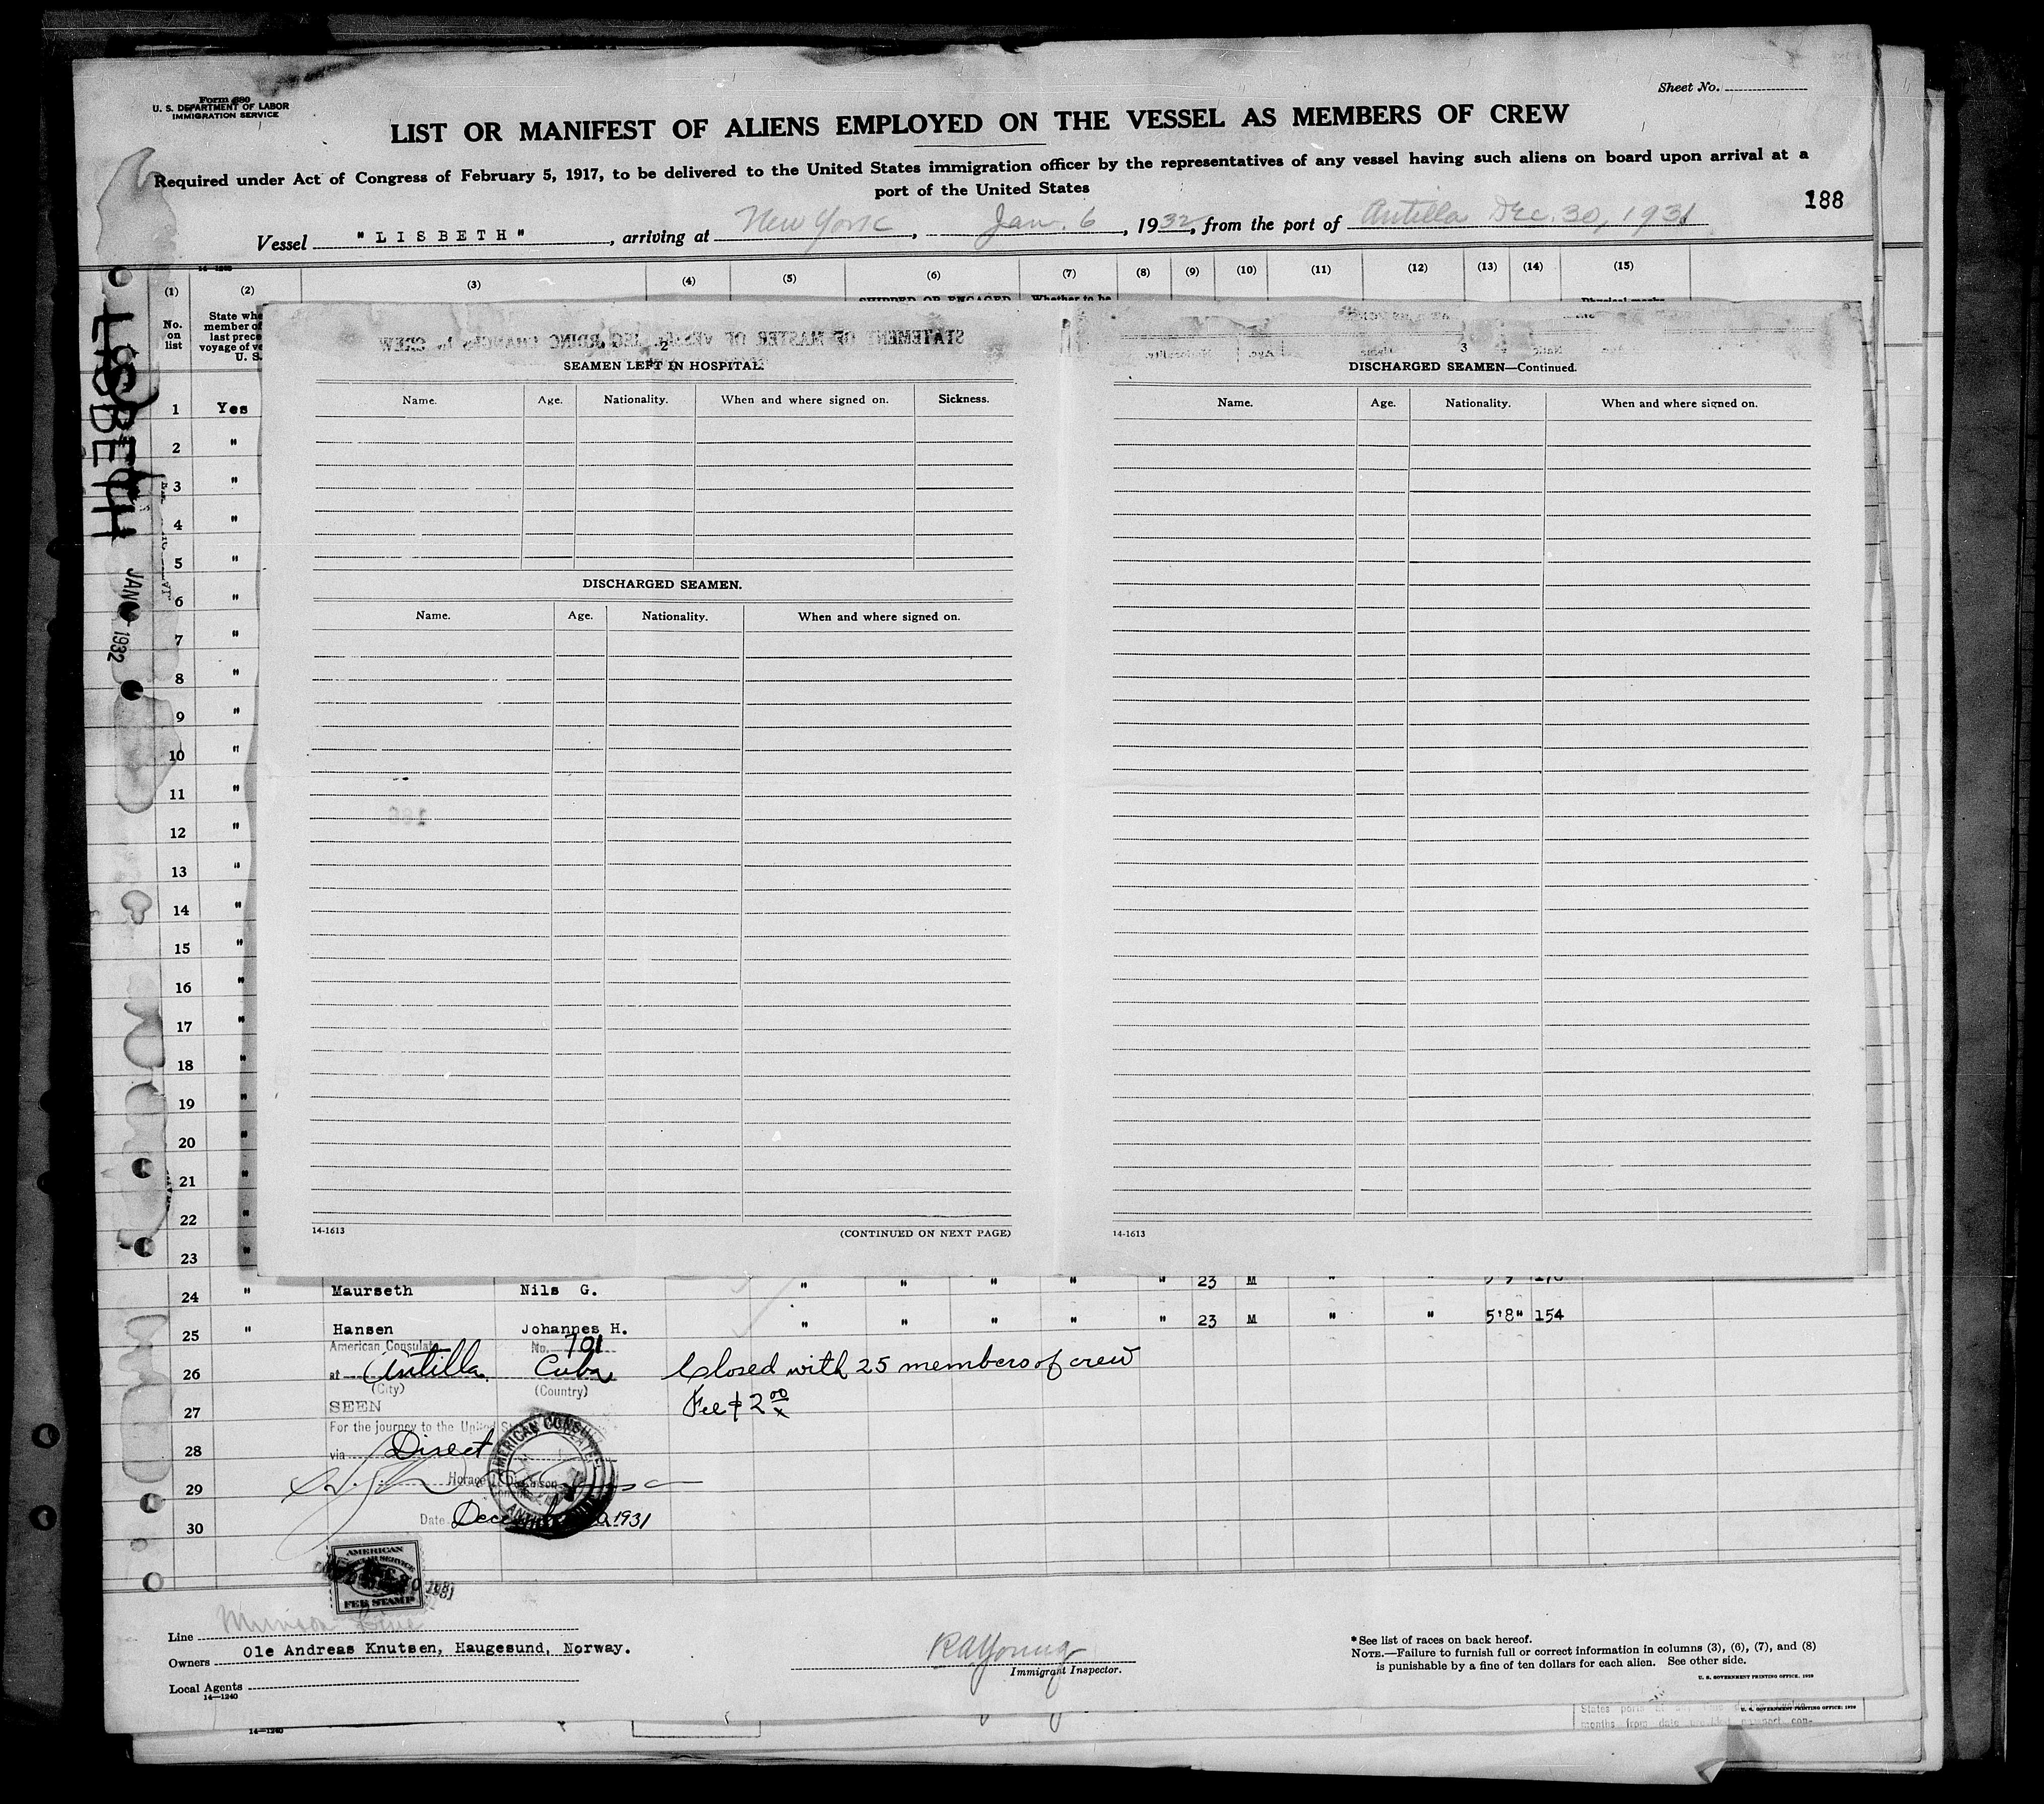 Form 680
U. S. DEPARTMENT OF LABOR
IMMIGRATION SERVICE
Sheet No.
LIST OR MANIFEST OF ALIENS EMPLOYED ON THE VESSEL AS MEMBERS OF CREW
Required under Act of Congress of February 5, 1917, to be delivered to the United States immigration officer by the representatives of any vessel having such aliens on board upon arrival at a
port of the United States
188
Vessel "LISBETH", arriving at New York, Jan. 6, 1932, from the port of Antilla Dec. 30, 1931
(1) (2) (3) (4) (5) (6) (7) (8) (9) (10) (11) (12) (13) (14) (15)
No. on list
State whe
member of
last prece
voyage of ve
U. S.
SHIPPED OR ENGAGED
Whether to be
Physical marks
LISBETH
JAN 1932
STATEMENT OF MASTER OF VESSEL REGARDING CHANGES IN CREW
2
SEAMEN LEFT IN HOSPITAL.
Name. Age. Nationality. When and where signed on. Sickness.
DISCHARGED SEAMEN.
Name. Age. Nationality. When and where signed on.
14-1613
(CONTINUED ON NEXT PAGE)
3
DISCHARGED SEAMEN—Continued.
Name. Age. Nationality. When and where signed on.
14-1613
1 Yes
2 "
3 "
4 "
5 "
6 "
7 "
8 "
9 "
10 "
11 "
12 "
13 "
14 "
15 "
16 "
17 "
18 "
19 "
20 "
21 "
22 "
23 "
24 " Maurseth Nils G. " " " " " 23 M " "
25 " Hansen Johannes H. " " " " " 23 M " " 5'8" 154
26
27
28
29
30
American Consulate No. 701
at Antilla, Cuba
(City) (Country)
Closed with 25 members of crew
Fee $2 00
SEEN
For the journey to the United St
via Direct
AMERICAN CONSULATE
Date 1931
AMERICAN
FEE STAMP
Line
Owners Ole Andreas Knutsen, Haugesund, Norway.
Local Agents
14—1240
R A Young
Immigrant Inspector.
*See list of races on back hereof.
NOTE.—Failure to furnish full or correct information in columns (3), (6), (7), and (8)
is punishable by a fine of ten dollars for each alien. See other side.
U. S. GOVERNMENT PRINTING OFFICE
14—1240